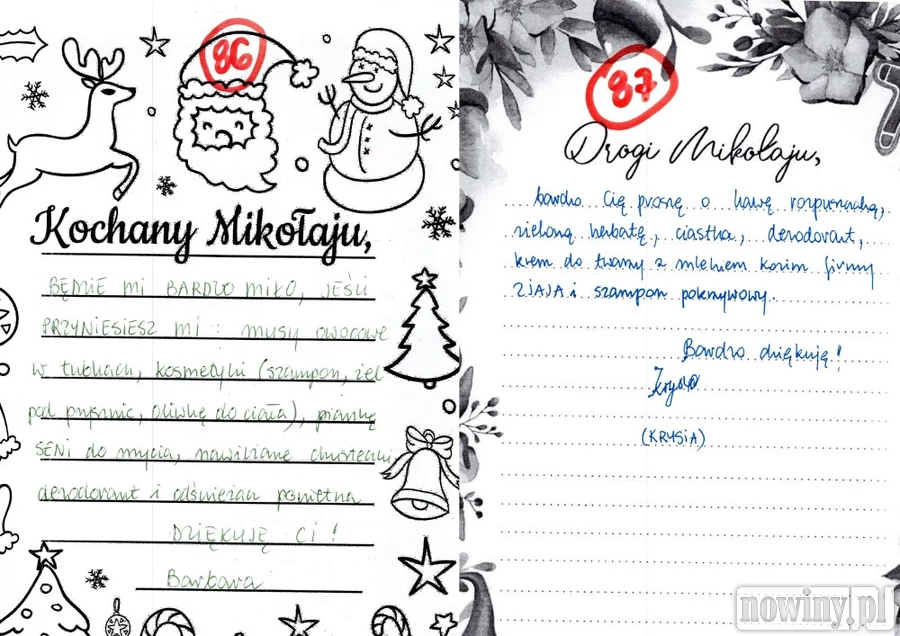 86
Kochany Mikołaju,
BĘMIE MI BARDZO MIŁO, JEŚLI
PRZYNIESIESZ MI : musy owocowe
w tubkach, kosmetyki (szampon, żel
pod prysznic, oliwkę do ciała), piankę
SENI do mycia, nawilżane chusteczki,
dezodorant i odświeżacz powietrza
DZIĘKUJĘ CI !
Barbara
87
Drogi Mikołaju,
bardzo Cię proszę o kawę rozpuszczalną,
zieloną herbatę, ciastka, dezodorant,
krem do twarzy z mlekiem kozim firmy
ZIAJA i szampon pokrzywowy.
Bardzo dziękuję!
Krysia
(KRYSIA)
nowiny.pl